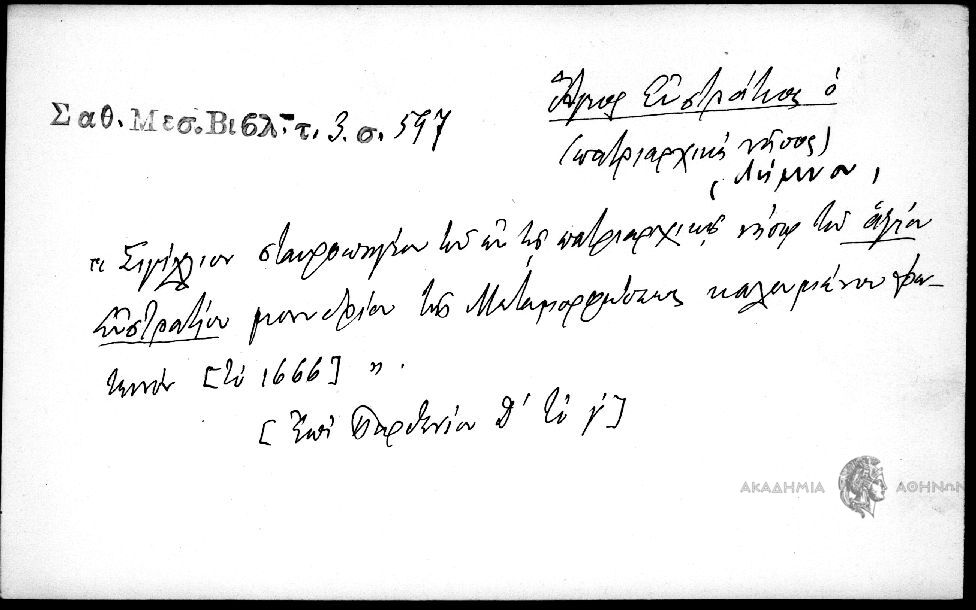 Σαθ. Μεσ. Βιβλ. τ. 3. σ. 597
Ἅγιος Εὐστράτιος ὁ
(πατριαρχικὴ νῆσος)
(Λήμνου)
"Σιγίλλιον σταυροπηγίου τοῦ ἐν τῇ πατριαρχικῇ νήσῳ τοῦ ἁγίου
Εὐστρατίου μονυδρίου τῆς Μεταμορφώσεως καλουμένου Φω-
τεινόν [τῷ 1666] ".
[Ἐπὶ Παρθενίου Δ' τὸ γ']
ΑΚΑΔΗΜΙΑ ΑΘΗΝΩΝ